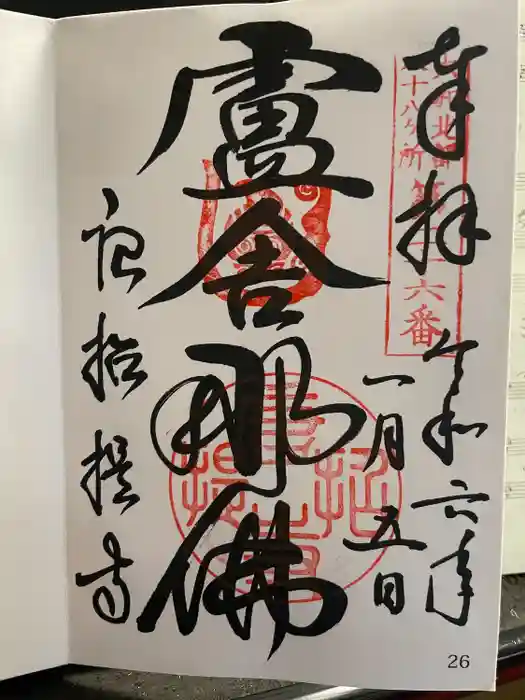 奉拝
令和六年
一月五日
大和北部
八十八ヶ所
第二十六番
盧舎那佛
唐招提寺
26